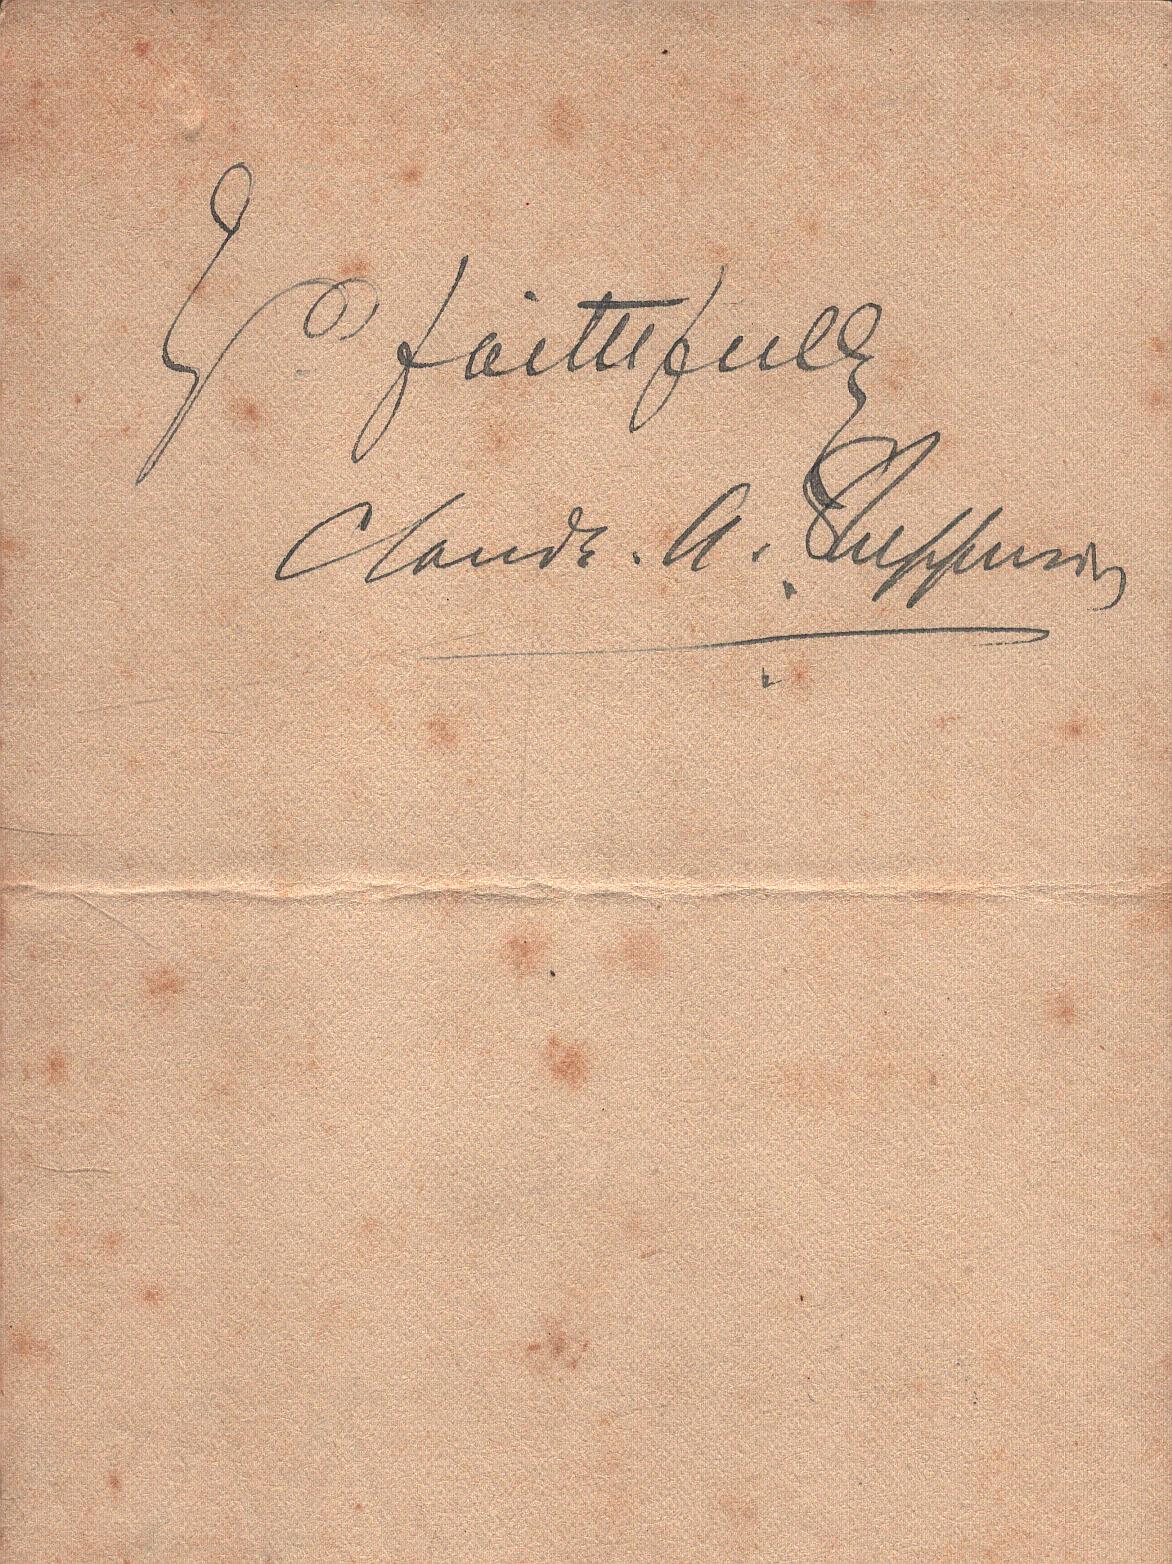 Yrs faithfully
Claude. A. Shepperson